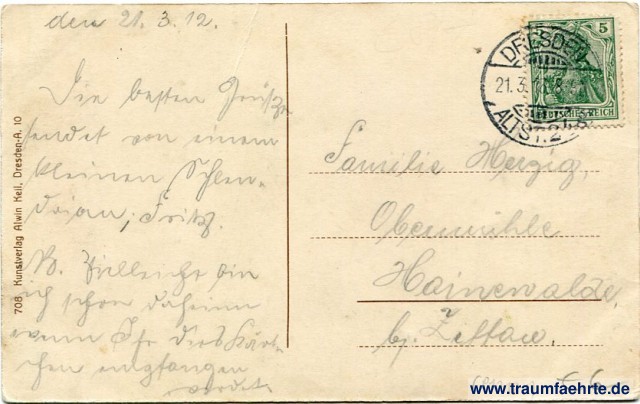 den 21.3.12.
Die besten Grüße
sendet von einem
kleinen Schlen-
drian, Fritz.
B. Vielleicht bin
ich schon daheim
wenn Ihr dies Kärt-
chen empfangen
werdet
708 Kunstverlag Alwin Keil, Dresden-A. 10
5
DEUTSCHES REICH
DRESDEN
21.3.
ALTST. 24
Familie Herzig,
Obermühle
Hainewalde,
b/ Zittau.
www.traumfaehrte.de